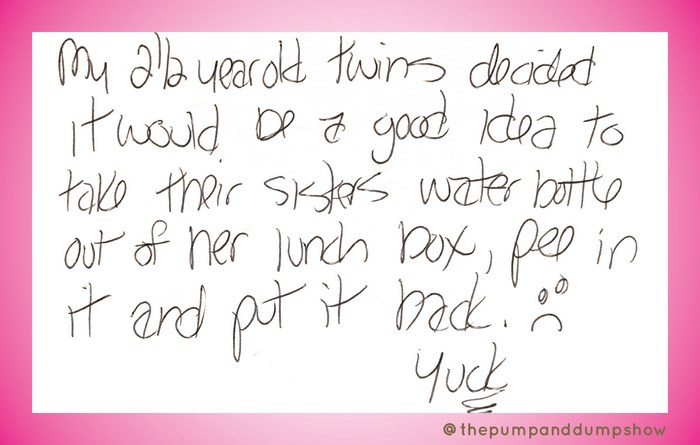 My 2 1/2 year old twins decided
it would be a good idea to
take their sisters water bottle
out of her lunch box, pee in
it and put it back. :(
Yuck
@thepumpanddumpshow